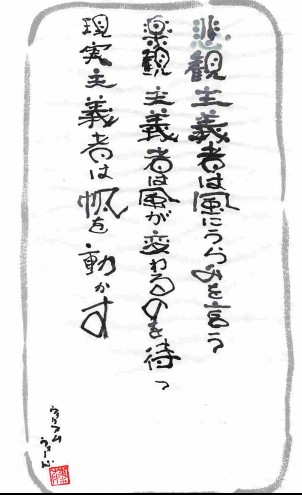 悲観主義者は風にうらみを言う
楽観主義者は風が変わるのを待つ
現実主義者は帆を動かす
ウィリアム
ウォード